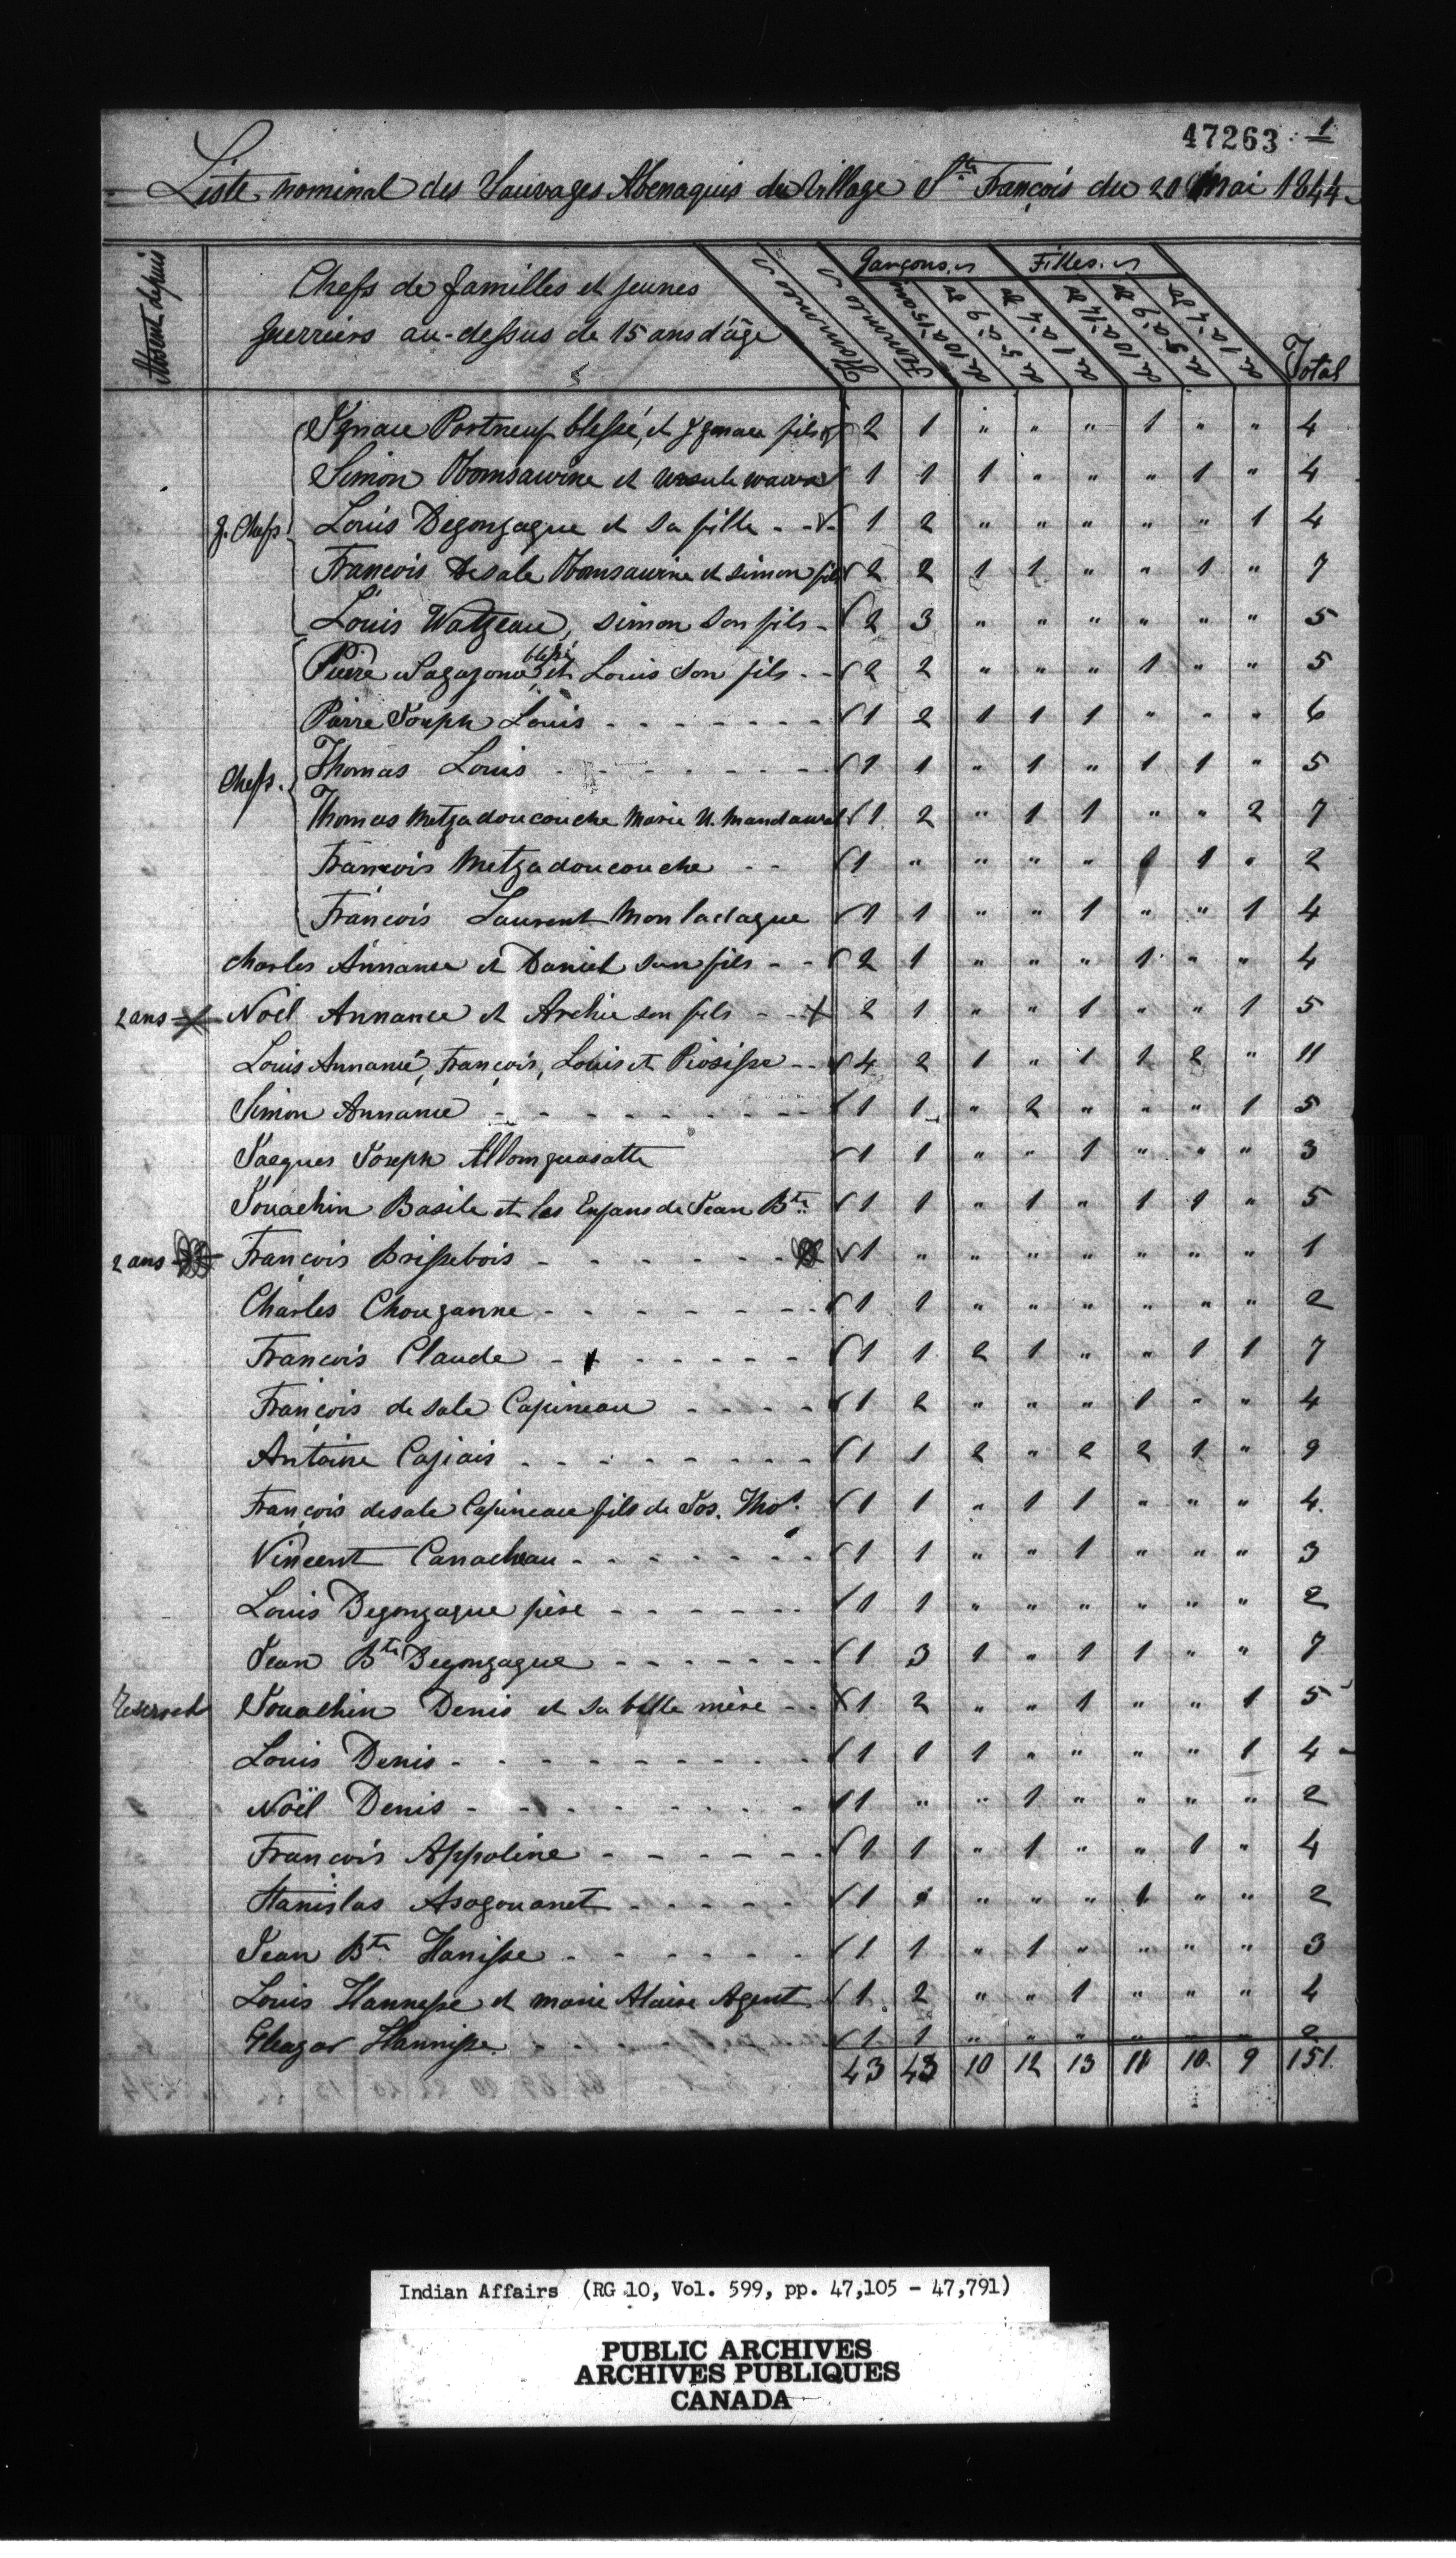 47263 1
Liste nominal des Sauvages Abenaquis du Village St François du 20 Mai 1844
Absent depuis
Chefs de familles et jeunes
guerriers au-dessus de 15 ans d'âge
Hommes
Femmes
Garçons
de 10 à 15 ans
de 5 à 9
de 1 à 4
Filles
de 10 à 14
de 5 à 9
de 1 à 4
Total
Ignace Portneuf blessé, et Ignace fils 2 1 " " " 1 " " 4
Simon Obomsawine et Ursule 1 1 1 " " " 1 " 4
g. Chefs Louis Degonzague et sa fille - - 1 2 " " " " " 1 4
François Desale Obomsawine et simon fils 2 2 1 1 " " 1 " 7
Louis Watzeau, simon son fils - 2 3 " " " " " " 5
Pierre blessé et Louis son fils - - 2 2 " " " 1 " " 5
Pierre Joseph Louis - - - - - - - 1 2 1 1 1 " " " 6
Chefs. Thomas Louis - - - - - - - 1 1 " 1 " 1 1 " 5
Thomas Metzadoucouche Marie U. 1 2 " 1 1 " " 2 7
François Metzadoucouche - - 1 " " " " 1 " 2
François Laurent 1 1 " " 1 " " 1 4
Charles Annance et Daniel son fils - - 2 1 " " " 1 " " 4
2 ans Noël Annance et Archie son fils - - 2 1 " " 1 " " 1 5
Louis Annance, François, Louis et - - 4 2 1 " 1 1 2 " 11
Simon Annance - - - - - - - - - 1 1 " 2 " " " 1 5
Jacques Joseph 1 1 " " 1 " " " 3
Jouachin Basile et les Enfans de Jean Bte 1 1 " 1 " 1 1 " 5
2 ans François Brissebois - - - - - - 1 " " " " " " " 1
Charles Chouganne - - - - - - - 1 1 " " " " " " 2
François Claude - - - - - - - 1 1 2 1 " " 1 1 7
François de Sale Capineau - - - - 1 2 " " " 1 " " 4
Antoine Capiais - - - - - - - - - 1 1 2 " 2 2 1 " 9
François desale Capineau fils de Jos. Thos. 1 1 " 1 1 " " " 4
Vincent Canacheau - - - - - - - 1 1 " " 1 " " " 3
Louis Degonzague père - - - - - - 1 1 " " " " " " 2
Jean Bte Degonzague - - - - - - - 1 3 1 " 1 1 " " 7
Jouachin Denis et sa belle mère - - 1 2 " " 1 " " 1 5
Louis Denis - - - - - - - - - 1 1 1 " " " " 1 4
Noël Denis - - - - - - - - - 1 " " 1 " " " " 2
François Appoline - - - - - - 1 1 " 1 " " 1 " 4
Stanislas Asogouanet - - - - - 1 " " " 1 " " 2
Jean Bte Hanisse - - - - - - 1 1 " 1 " " " " 3
Louis Hannesse et marie Alaire Agent 1 2 " " 1 " " " 4
Hannisse 1 1 " " " " " " 2
43 43 10 12 13 11 10 9 151
Indian Affairs (RG 10, Vol. 599, pp. 47,105 - 47,791)
PUBLIC ARCHIVES
ARCHIVES PUBLIQUES
CANADA